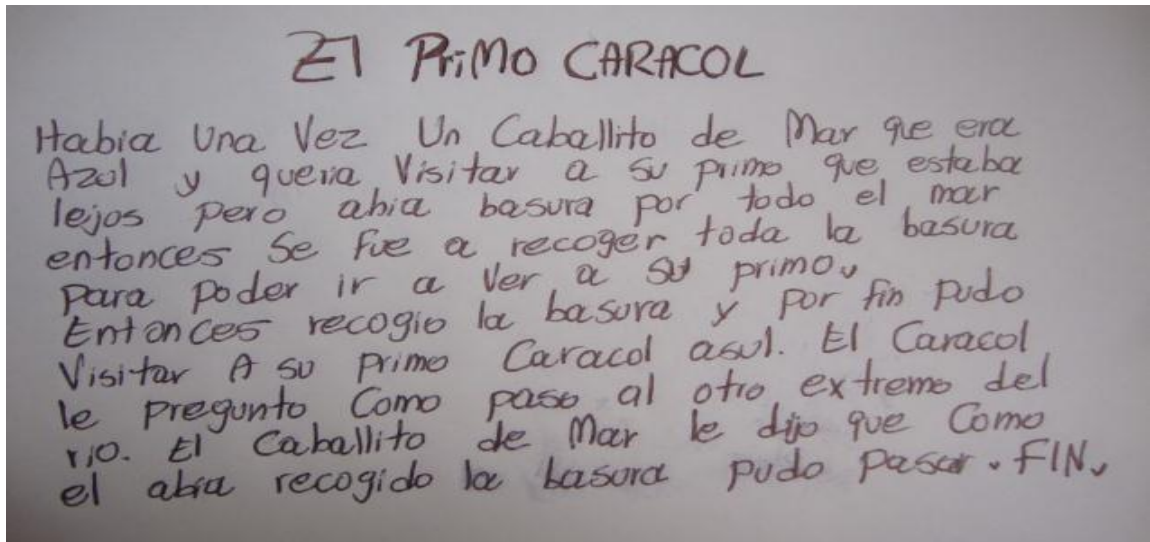 El PriMo CARACOL
Habia Una Vez Un Caballito de Mar que era
Azul y queria Visitar a su primo que estaba
lejos pero abia basura por todo el mar
entonces Se fue a recoger toda la basura
para poder ir a Ver a su primo.
Entonces recogio la basura y por fin pudo
Visitar A su Primo Caracol asul. El Caracol
le pregunto Como paso al otro extremo del
rio. El Caballito de Mar le dijo que Como
el abia recogido la basura pudo pasar. FIN.